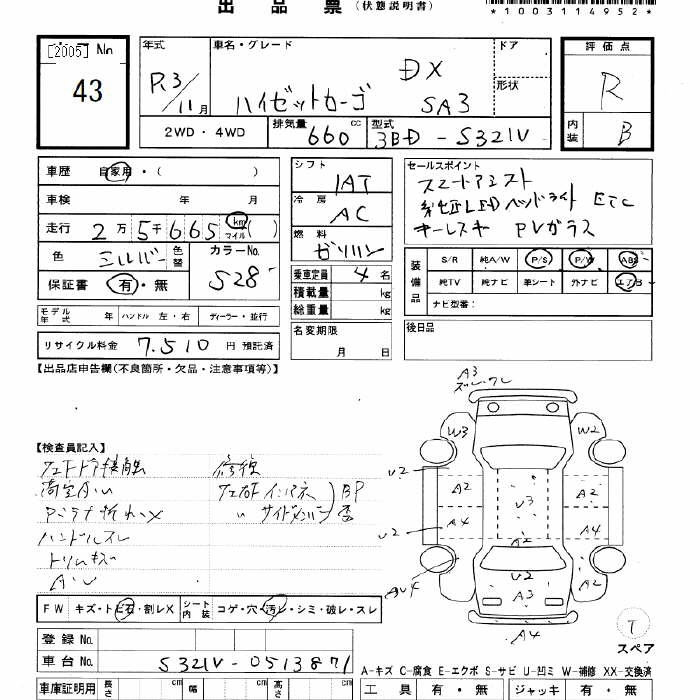 出品票(状態説明書)
*1003114952*
[2005] No
43
年式
R3/11月
車名・グレード
DX
ハイゼットカーゴ SA3
ドア
形状
評価点
R
内装
B
2WD・4WD
排気量 660 cc
型式 3BD - S321V
車歴 自家用・( )
車検 年 月
走行 2万5千665 km マイル( )
色 シルバー 色替
カラーNo. S28
保証書 有・無
モデル年式 年 ハンドル 左・右 ディーラー・並行
リサイクル料金 7.510 円 預託済
シフト
IAT
冷房
AC
燃料
ガソリン
乗車定員 4 名
積載量 kg
総重量 kg
名変期限
月 日
セールスポイント
スマートアシスト
純正LEDヘッドライト ETC
キーレスキー PVガラス
装備品
S/R 純A/W P/S P/W ABS
純TV 純ナビ 革シート 外ナビ エアB
ナビ型番:
後日品
【出品店申告欄(不良箇所・欠品・注意事項等)】
【検査員記入】
修復
インパネ
BP
サイドメンバ
ハンドルスレ
トリムキズ
A3
W3
W2
U2
A2
A2
U3
U2
A4
A4
A2
AU4
U2
A3
A2
A4
T
スペア
FW キズ・ト ビ石・割レX シート内装 コゲ・穴・汚レ・シミ・破レ・スレ
登録No.
車台No. S321V-0513871
A-キズ C-腐食 E-エクボ S-サビ U-凹ミ W-補修 XX-交換済
車庫証明用 長さ cm 幅 cm 高さ cm
工具 有・無 ジャッキ 有・無